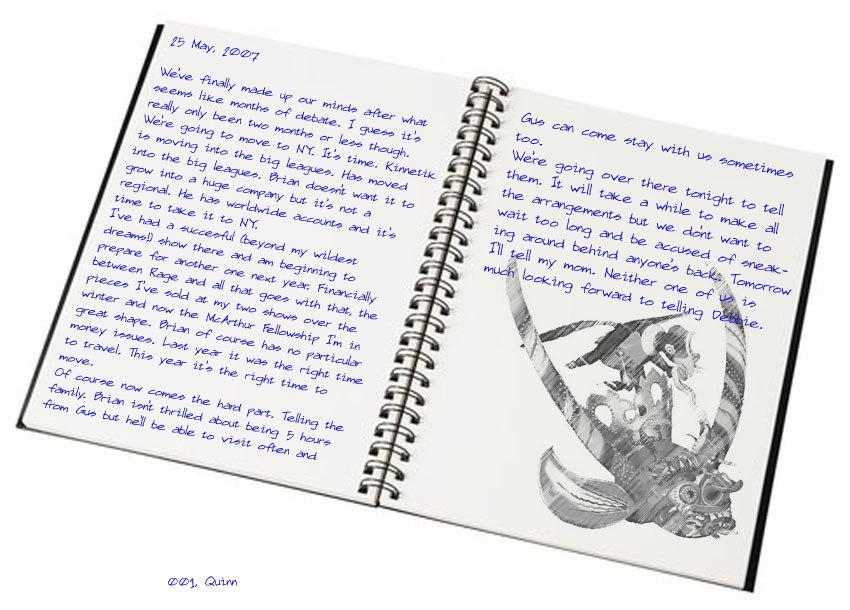 25 May, 2007
We've finally made up our minds after what
seems like months of debate. I guess it's
really only been two months or less though.
We're going to move to NY. It's time. Kinnetik
is moving into the big leagues. Has moved
into the big leagues. Brian doesn't want it to
grow into a huge company but it's not a
regional. He has worldwide accounts and it's
time to take it to NY.
I've had a succesful (beyond my wildest
dreams!) show there and am beginning to
prepare for another one next year. Financially
between Rage and all that goes with that, the
pieces I've sold at my two shows over the
winter and now the McArthur Fellowship I'm in
great shape. Brian of course has no particular
money issues. Last year it was the right time
to travel. This year it's the right time to
move.
Of course now comes the hard part. Telling the
family. Brian isn't thrilled about being 5 hours
from Gus but he'll be able to visit often and
Gus can come stay with us sometimes
too.
We're going over there tonight to tell
them. It will take a while to make all
the arrangements but we don't want to
wait too long and be accused of sneak-
ing around behind anyone's back. Tomorrow
I'll tell my mom. Neither one of us is
much looking forward to telling Debbie.
001, Quinn